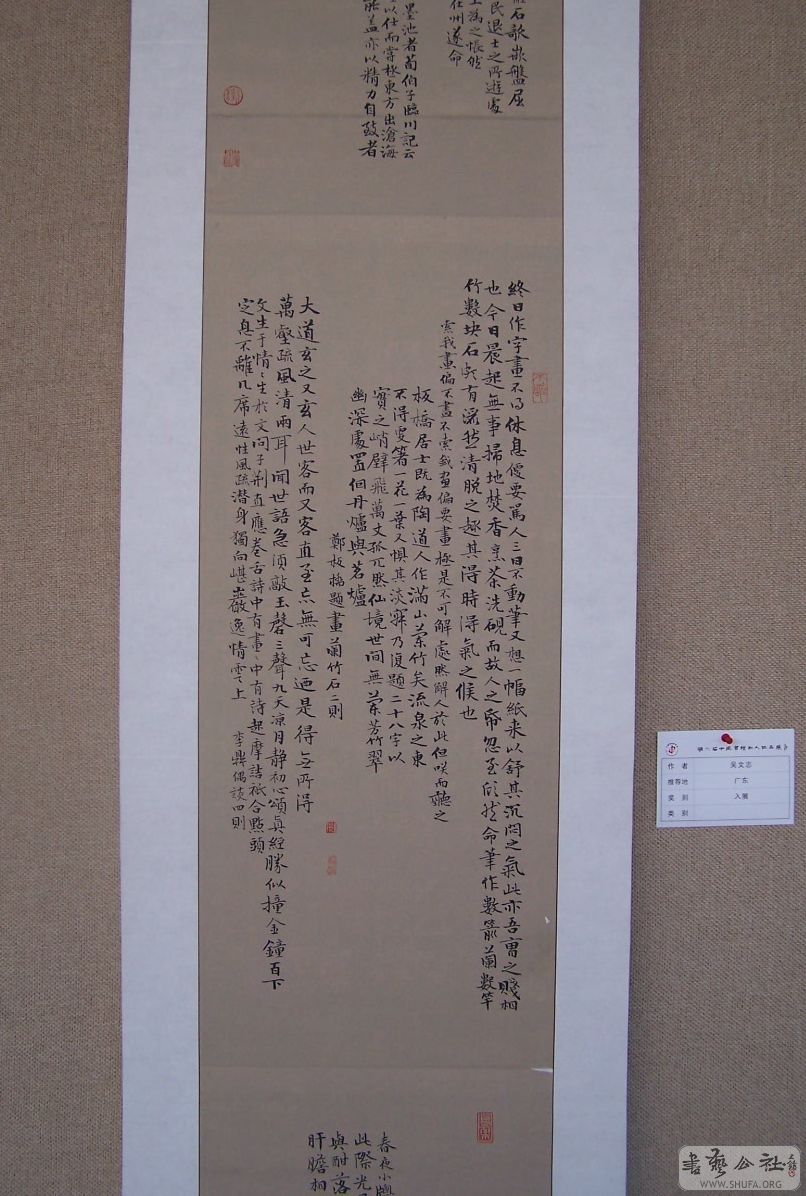 石歌嵌盤屈
民退士之所遊處
上為之悵然
仕州遂命
墨池者荀伯子臨川記云
以仕而嘗極東方出滄海
能蓋亦以精力自致者
終日作字畫不得休息便要罵人三日不動筆又想一幅紙來以舒其沉悶之氣此亦吾曹之賤相
也今日晨起無事掃地焚香烹茶洗硯而故人之紙忽至欣然命筆作數箭蘭數竿
竹數块石頗有灑然清脫之趣其得時得氣之候也
索我畫偏不畫不索我畫偏要畫極是不可解處然解人於此但咲而聽之
板橋居士既為陶道人作滿山蘭竹矣流泉之東
不得更著一花一葉又惧其淡寂乃復題二十八字以
實之峭壁飛萬丈孤兀然仙境世间無蘭芳竹翠
幽深處置個丹爐與茗爐
鄭板橋題畫蘭竹石二則
大道玄之又玄人世客而又客直至忘無可忘迺是得無所得
萬壑疏風清兩耳聞世語急須敲玉磬三聲九天凉月静初心頌真經勝似撞金鐘百下
文生于情情生於文问子荆直應卷舌詩中有畫畫中有詩起摩詰祇合點頭
定息不離几席遠性風疏潜身獨向嵁巖逸情雲上
李鼎偶談四則
春夜小
此際光
與酎落
肝膽相
作者 吴文志
推荐地 广东
奖别 入展
类别
書藝公社
WWW.SHUFA.ORG